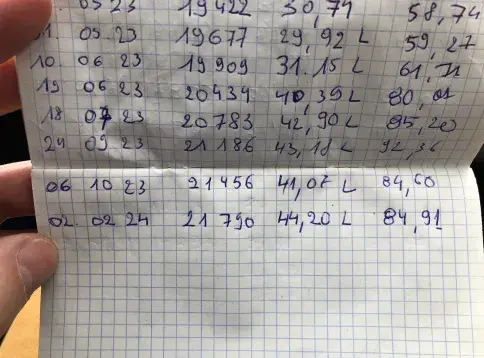 05 23 19422 30,74 58,74
01. 05. 23 19677 29,92 L 59,27
10. 06 23 19909 31.15 L 61,71
19 06 23 20434 40,39 L 80,01
18 07 23 20783 42,90 L 85,20
24 09 23 21186 43,18 L 92,36
06 10 23 21456 41,07 L 84,60
02. 02 24 21790 44,20 L 84,91